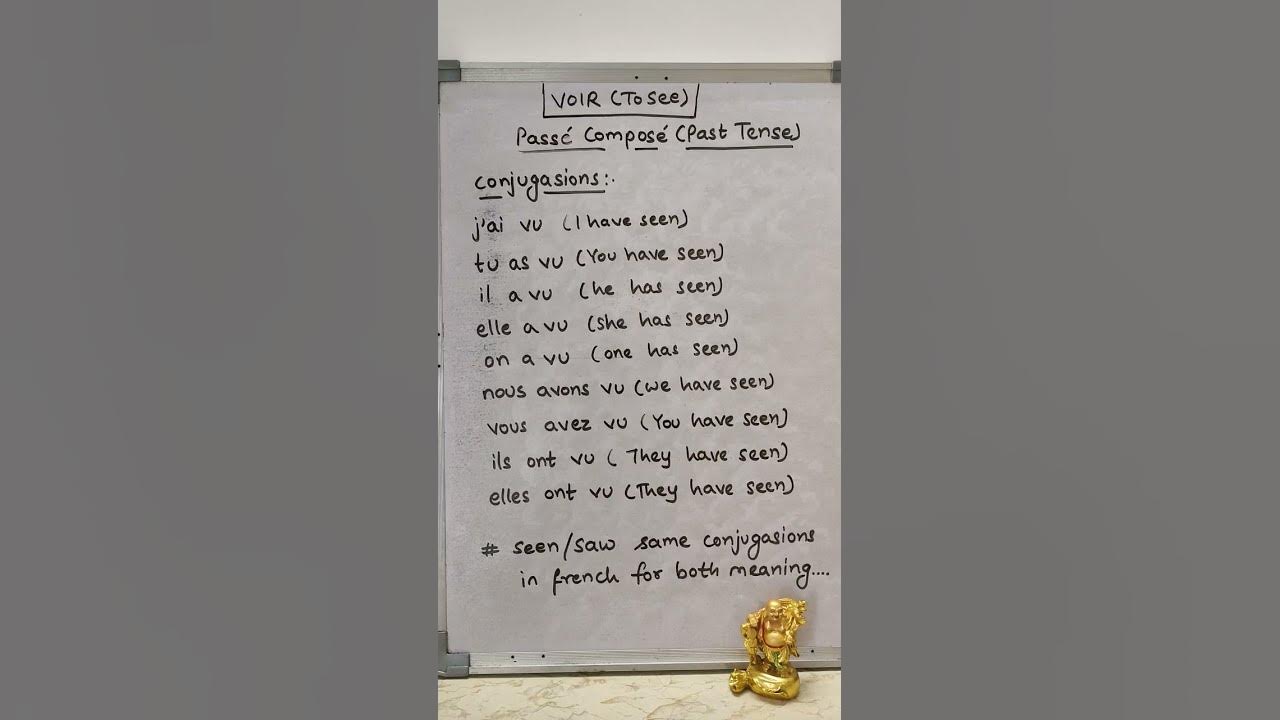 VOIR (To See)
Passé Composé (Past Tense)
conjugasions:-
j'ai vu (I have seen)
tu as vu (You have seen)
il a vu (he has seen)
elle a vu (she has seen)
on a vu (one has seen)
nous avons vu (we have seen)
vous avez vu (You have seen)
ils ont vu (They have seen)
elles ont vu (They have seen)
# seen/saw same conjugasions
in french for both meaning....